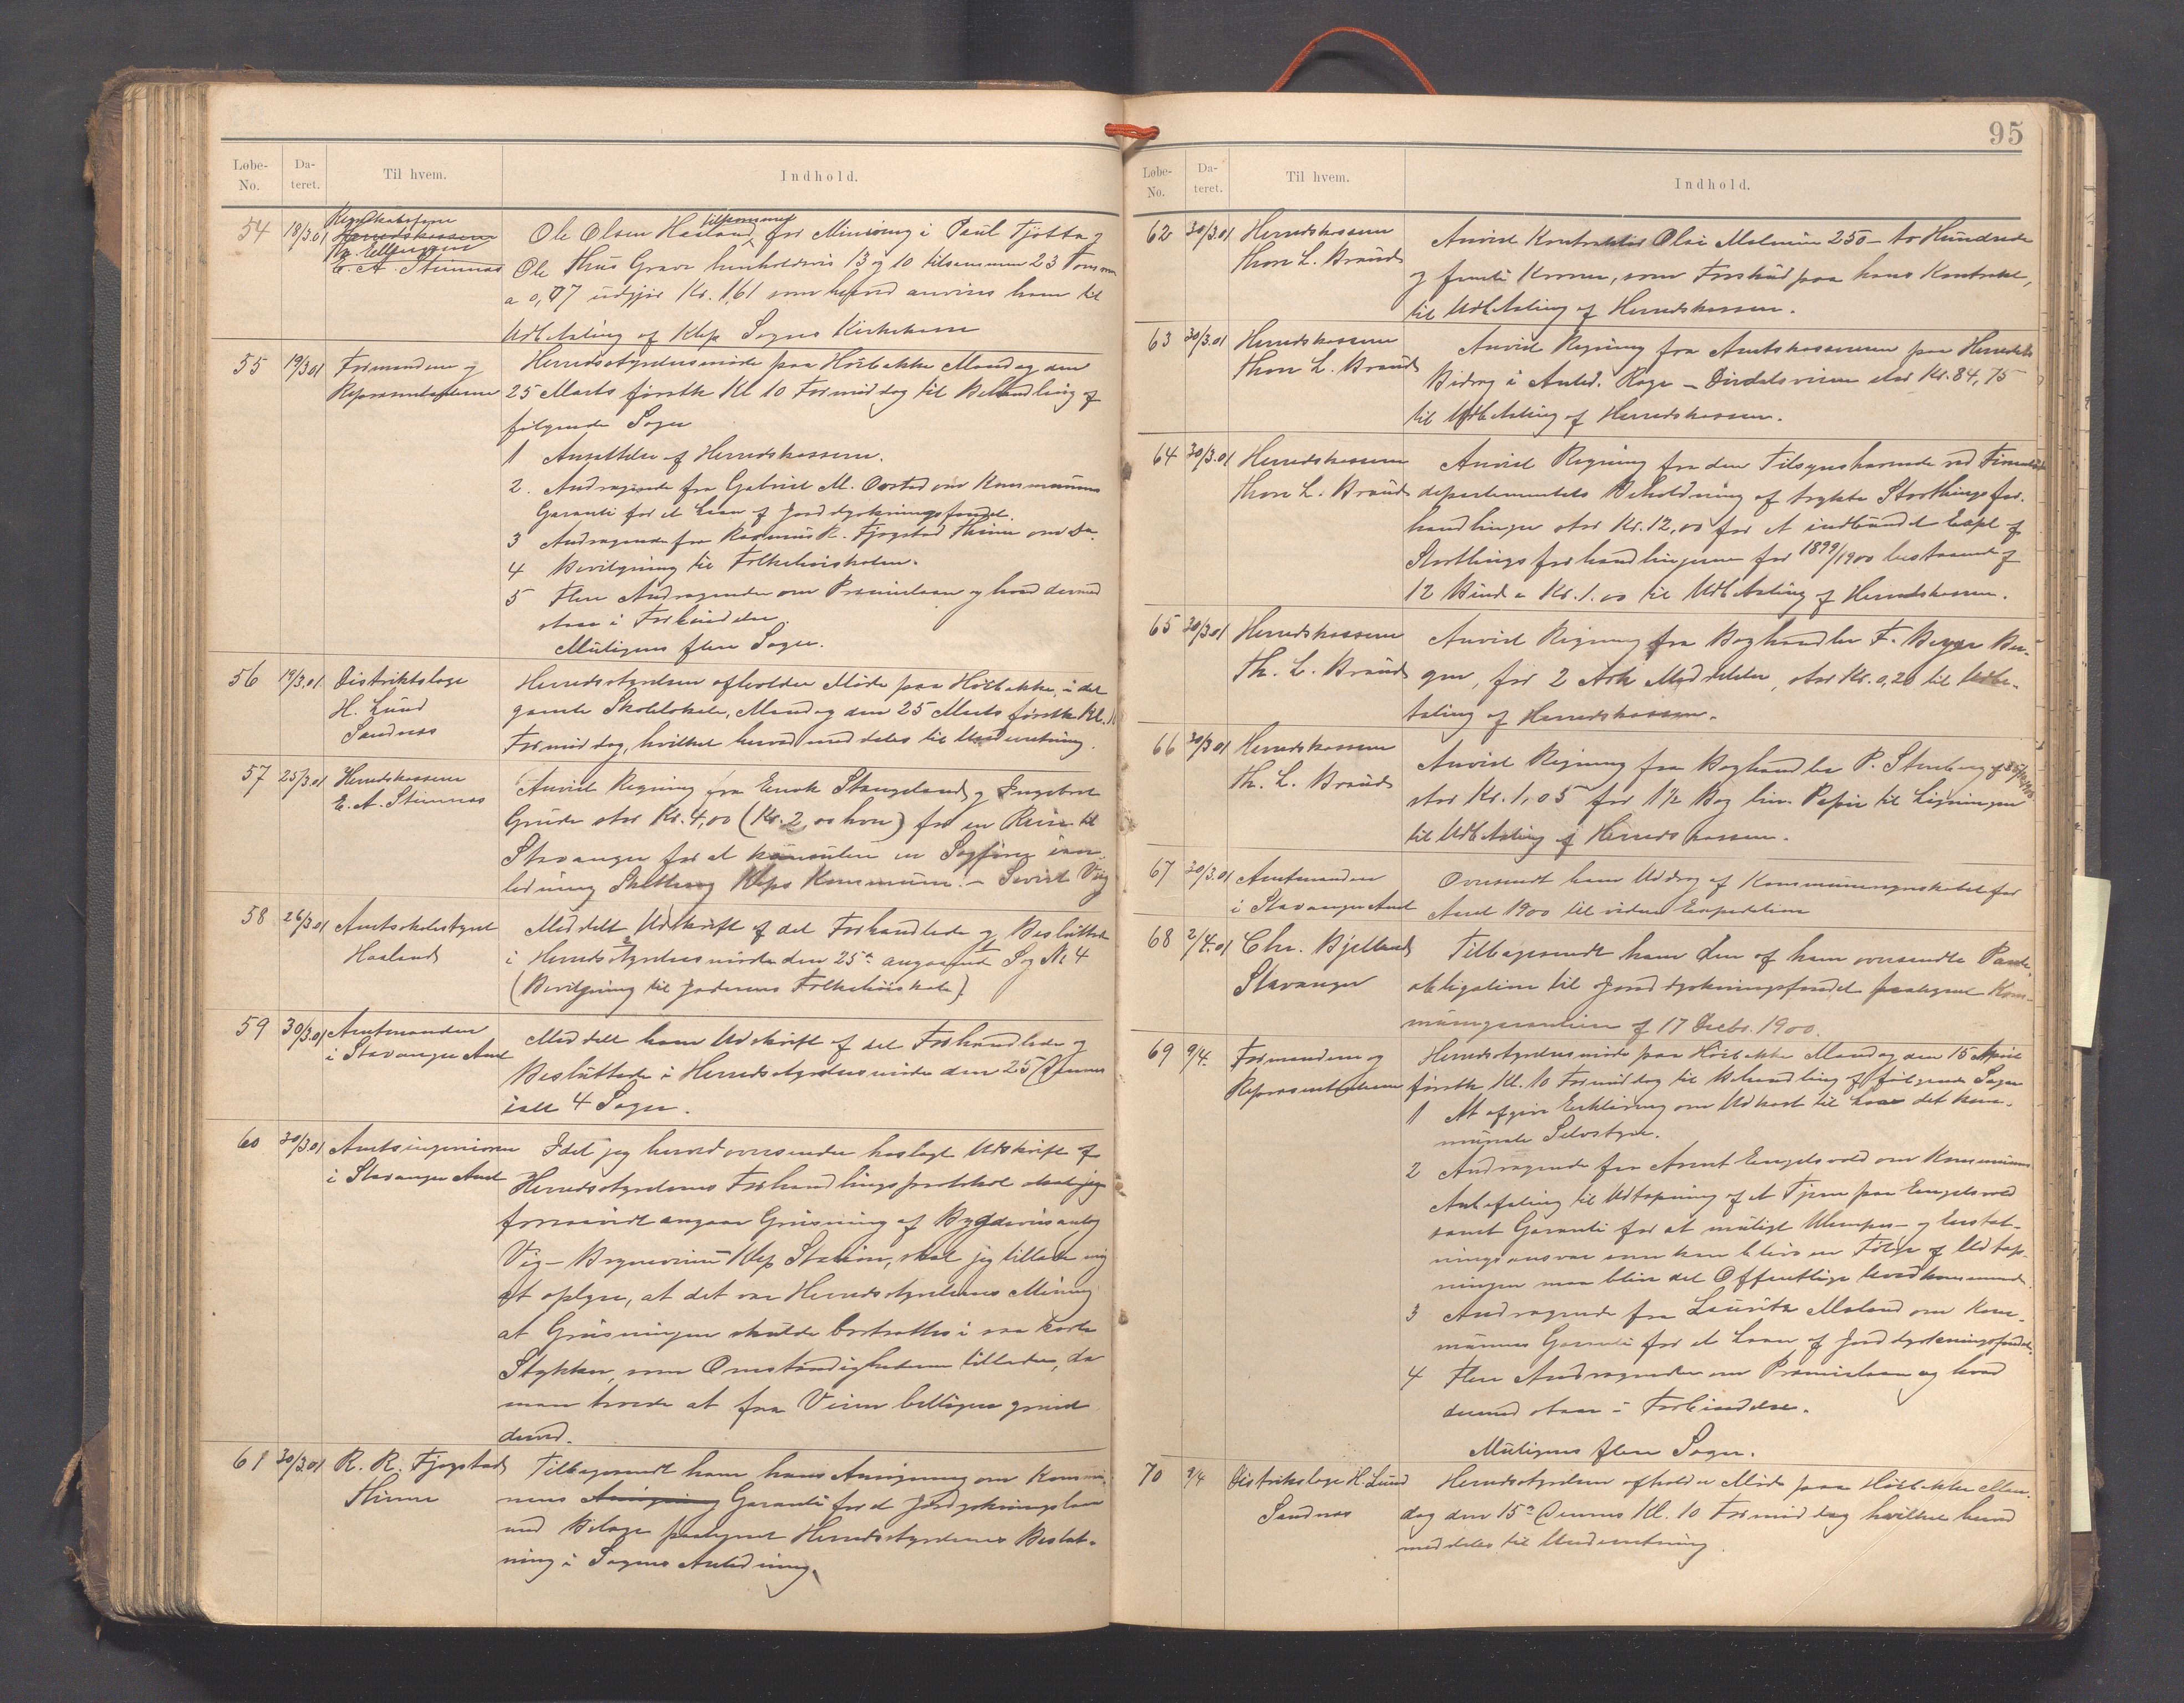 95
Løbe-No. Da-teret. Til hvem. Indhold.
54 18/3.01 Regnskabsfører
Herredskasserer
E. A. Stimnas
Ole Olsen Haaland tilkommer for Minering i Paul Tjøtta og
Ole Thus Grave henholdsvis 13 og 10 tilsammen 23 Tommer
a 0,07 udgjør Kr. 1,61 som herved anvises ham til
Udbetaling af Klep Sogns Kirkekasse
55 19/3.01 Formændene og
Repræsentanterne
Herredsstyrelsesmøde paa Hörbakke Mandag den
25 Marts førstk Kl 10 Formiddag til Behandling af
følgende Sager
1 Ansættelse af Herredskasserer.
2. Andragende fra Gabriel M. Orstad om Kommunens
Garanti for et Laan af Jorddyrkningsfondet.
3 Andragende fra Rasmus R. Fjogstad Thime om Do.
4 Bevilgning til Folkehøiskolen.
5 Flere Andragender om Præmielaan og hvad dermed
staar i Forbindelse.
Muligens flere Sager.
56 19/3.01 Distriktslæge
H. Lund
Sandnæs
Herredsstyrelsen afholder Møde paa Hörbakke, i det
gamle Skolelokale, Mandag den 25 Marts førstk Kl. 10
Formiddag, hvilket herved meddeles til Underretning.
57 25/3.01 Herredskasserer
E. A. Stimnas
Anvist Regning fra Enok Stangeland og Ingebret
Grude stor Kr. 4,00 (Kr. 2,00 hver) for en Reise til
Stavanger for at konsulere en Sagfører i an-
ledning Skatte Klep Kommune. – Sivert Vig
58 26/3.01 Amtsskolestyret
Haaland
Meddelt Udskrift af det Forhandlede og Besluttede
i Herredsstyrelsesmøde den 25de angaaende Sag No 4
(Bevilgning til Jæderens Folkehöiskole).
59 30/3.01 Amtmanden
i Stavanger Amt
Meddelt ham Udskrift af det Forhandlede og
Besluttede i Herredsstyrelsesmøde den 25 Dennes
ialt 4 Sager.
60 30/3.01 Amtsingeniøren
i Stavanger Amt
Idet jeg herved oversender hoslagt Udskrift af
Herredsstyrelsens Forhandlingsprotokol skal jeg
forsaavidt angaar Grusning af Bygdeveisanlæg
Vig – Bryneveien Klep Station, skal jeg tillade mig
at oplyse, at det var Herredsstyrelsens Mening
at Grusningen skulde bortsættes i saa korte
Stykker, som Omstændighederne tillader, da
man troede at faa Veien billigere gruset
derved.
61 30/3.01 R. R. Fjogstad
Thime
Tilbagesendt ham hans Ansøgning om Kommu-
nens Ansøgning Garanti for et Jorddyrkningslaan
med Bilage paategnet Herredsstyrelsens Beslut-
ning i Sagens Anledning.
Løbe-No. Da-teret. Til hvem. Indhold.
62 30/3.01 Herredskasserer
Thore L. Braud
Anvist Kontraktør Olai Malmin 250 – to Hundrede
og femti Kroner, som Forskud paa hans Kontrakt,
til Udbetaling af Herredskassen.
63 30/3.01 Herredskasserer
Thore L. Braud
Anvist Regning fra Amtskassereren paa Herredets
Bidrag i Anled. Rage – Dirdalsveien stor Kr. 84,75
til Udbetaling af Herredskassen.
64 30/3.01 Herredskasserer
Thore L. Braud
Anvist Regning fra den Tilsynshavende ved Finants-
departementets Beholdning af trykte Storthingsfor-
handlinger stor Kr. 12,00 for et indbundet Expl af
Storthingsforhandlingerne for 1899/1900 bestaaende af
12 Bind a Kr. 1.00 til Udbetaling af Herredskassen.
65 30/3.01 Herredskasserer
Th. L. Braud
Anvist Regning fra Boghandler F. Beyer Ber-
gen, for 2 Ark Meddelelser, stor Kr. 0,20 til Udbe-
taling af Herredskassen.
66 30/3.01 Herredskasserer
Th. L. Braud
Anvist Regning fra Boghandler P. Stenberg af
stor Kr. 1,05 for 1½ Bog lin. Papir til Ligningen
til Udbetaling af Herredskassen.
67 30/3.01 Amtmanden
i Stavanger Amt
Oversendt ham Uddrag af Kommuneregnskabet for
Aaret 1900 til videre Expedition
68 2/4.01 Chr. Bjelland
Stavanger
Tilbagesendt ham den af ham oversendte Pante-
obligation til Jorddyrkningsfondet paategnet Kom-
munegarantien af 17 Decbr. 1900.
69 9/4. Formændene og
Repræsentanterne
Herredsstyrelsesmöde paa Hörbakke Mandag den 15 April
førstk Kl. 10 Formiddag til Behandling af følgende Sager
1 At afgive Erklæring om Udkast til Love det kom-
munale Selvstyre.
2 Andragende fra Arent Engelsvold om Kommunens
Anbefaling til Udtapning af et Tjern paa Engelsvold
samt Garanti for at muligt Ulempes- og Erstat-
ningsansvar som kan blive en Følge af Udtap-
ningen maa blive det Offentlige uvedkommende.
3 Andragende fra Lauritz Maland om Kom-
munens Garanti for et Laan af Jorddyrkningsfondet.
4 Flere Andragender om Præmielaan og hvad
dermed staar i Forbindelse.
Muligens flere Sager.
70 9/4 Distriktslæge H. Lund
Sandnæs
Herredsstyrelsen afholder Møde paa Hörbakke Man-
dag den 15de Dennes Kl. 10 Formiddag hvilket herved
meddeles til Underretning.